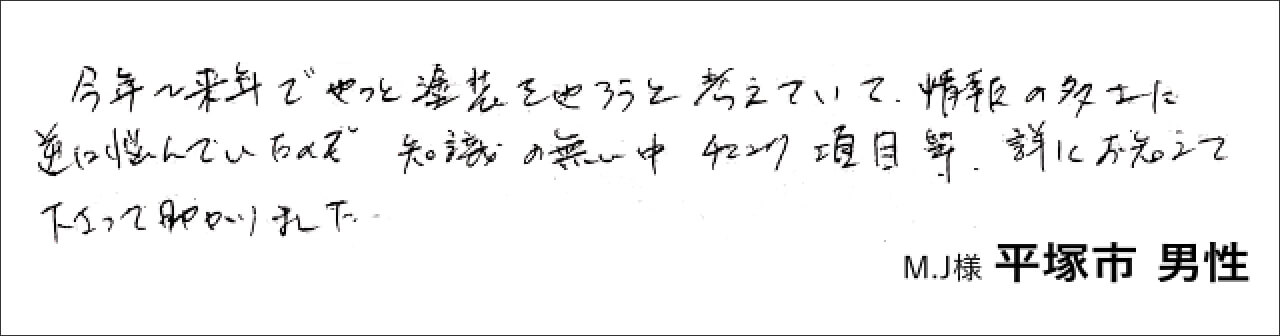 今年〜来年でやっと塗装をやろうと考えていて、情報の多さに
逆に悩んでいたので 知識の無い中 チェック項目等、詳しくお教えて
下さって助かりました
M.J様 平塚市 男性